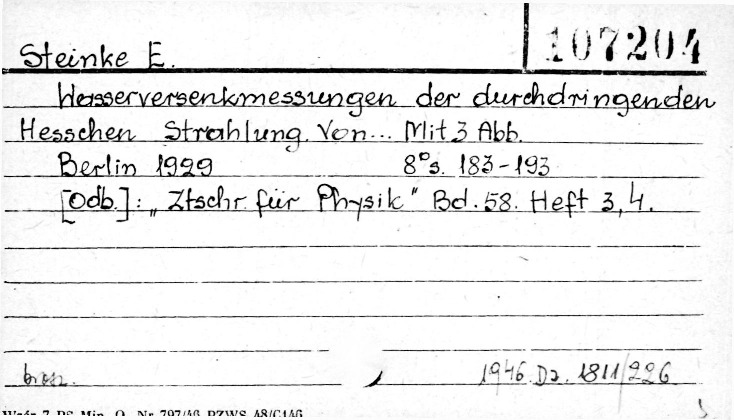 Steinke E. 107204
Wasserversenkmessungen der durchdringenden
Hesschen Strahlung. Von... Mit 3 Abb.
Berlin 1929 8° s. 183-193
[Odb.]: „Ztschr. für Physik" Bd. 58. Heft 3, 4.
brosz. 1946. Dz. 1811/226